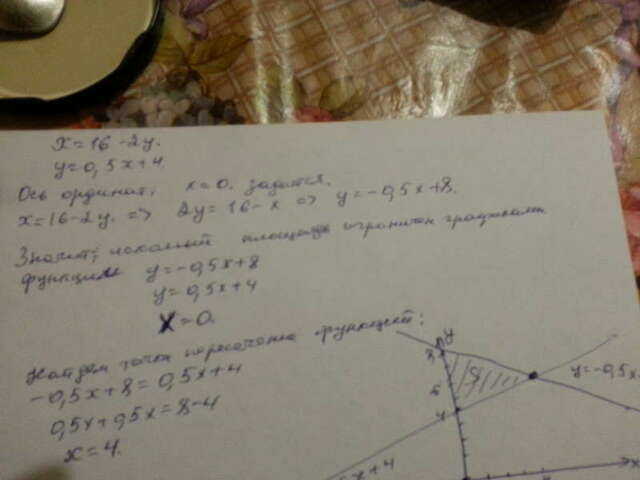 x=16-2y.
y=0,5x+4.
Ось ординат; x=0. задается.
x=16-2y. => 2y=16-x => y=-0,5x+8.
Значит; искомый площадь ограничен графиками
функции y=-0,5x+8
y=0,5x+4
x=0.
Найдем точки пересечения функций:
-0,5x+8=0,5x+4
0,5x+0,5x=8-4
x=4.
y
8
S
y=-0,5x
4
5x+4
x